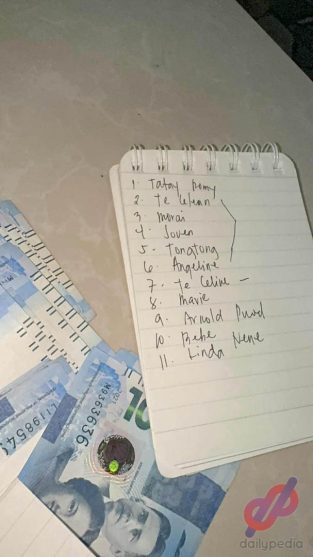 1. Tatay
2. Te
3. Morai
4. Joven
5. Tongtong
6. Angeline
7. Te Celine -
8. Mavie
9. Arnold
10. Bebe Nene
11. Linda
M9363636
10
dailypedia